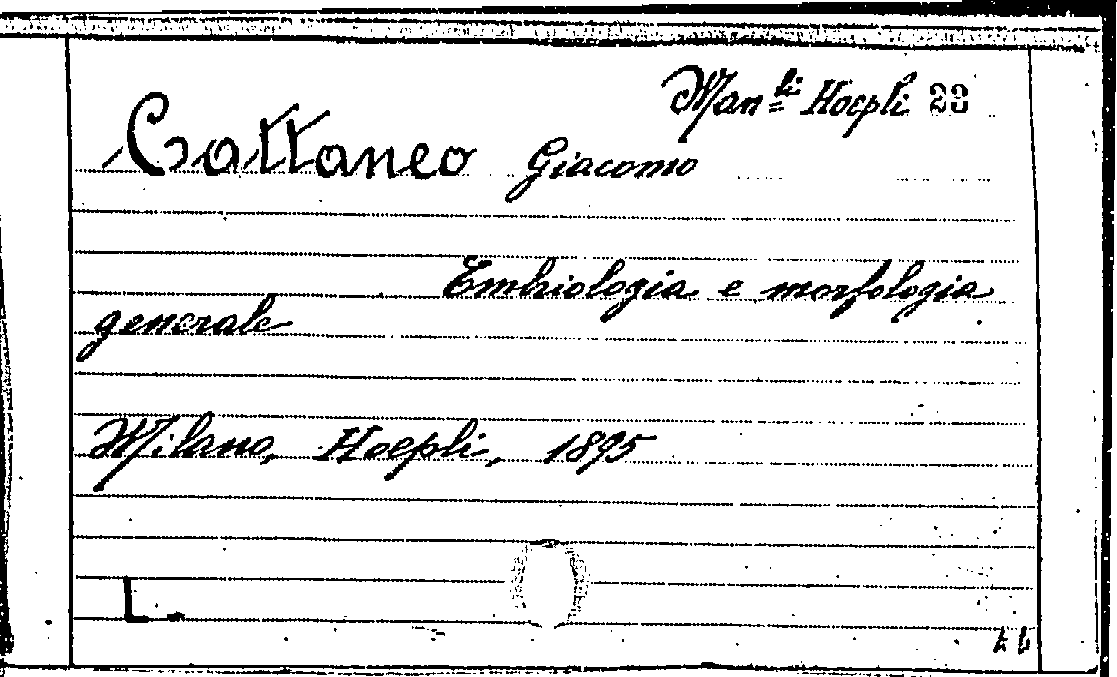 Man.li Hoepli 23
Cattaneo Giacomo
Embriologia e morfologia
generale
Milano, Hoepli, 1895
L.